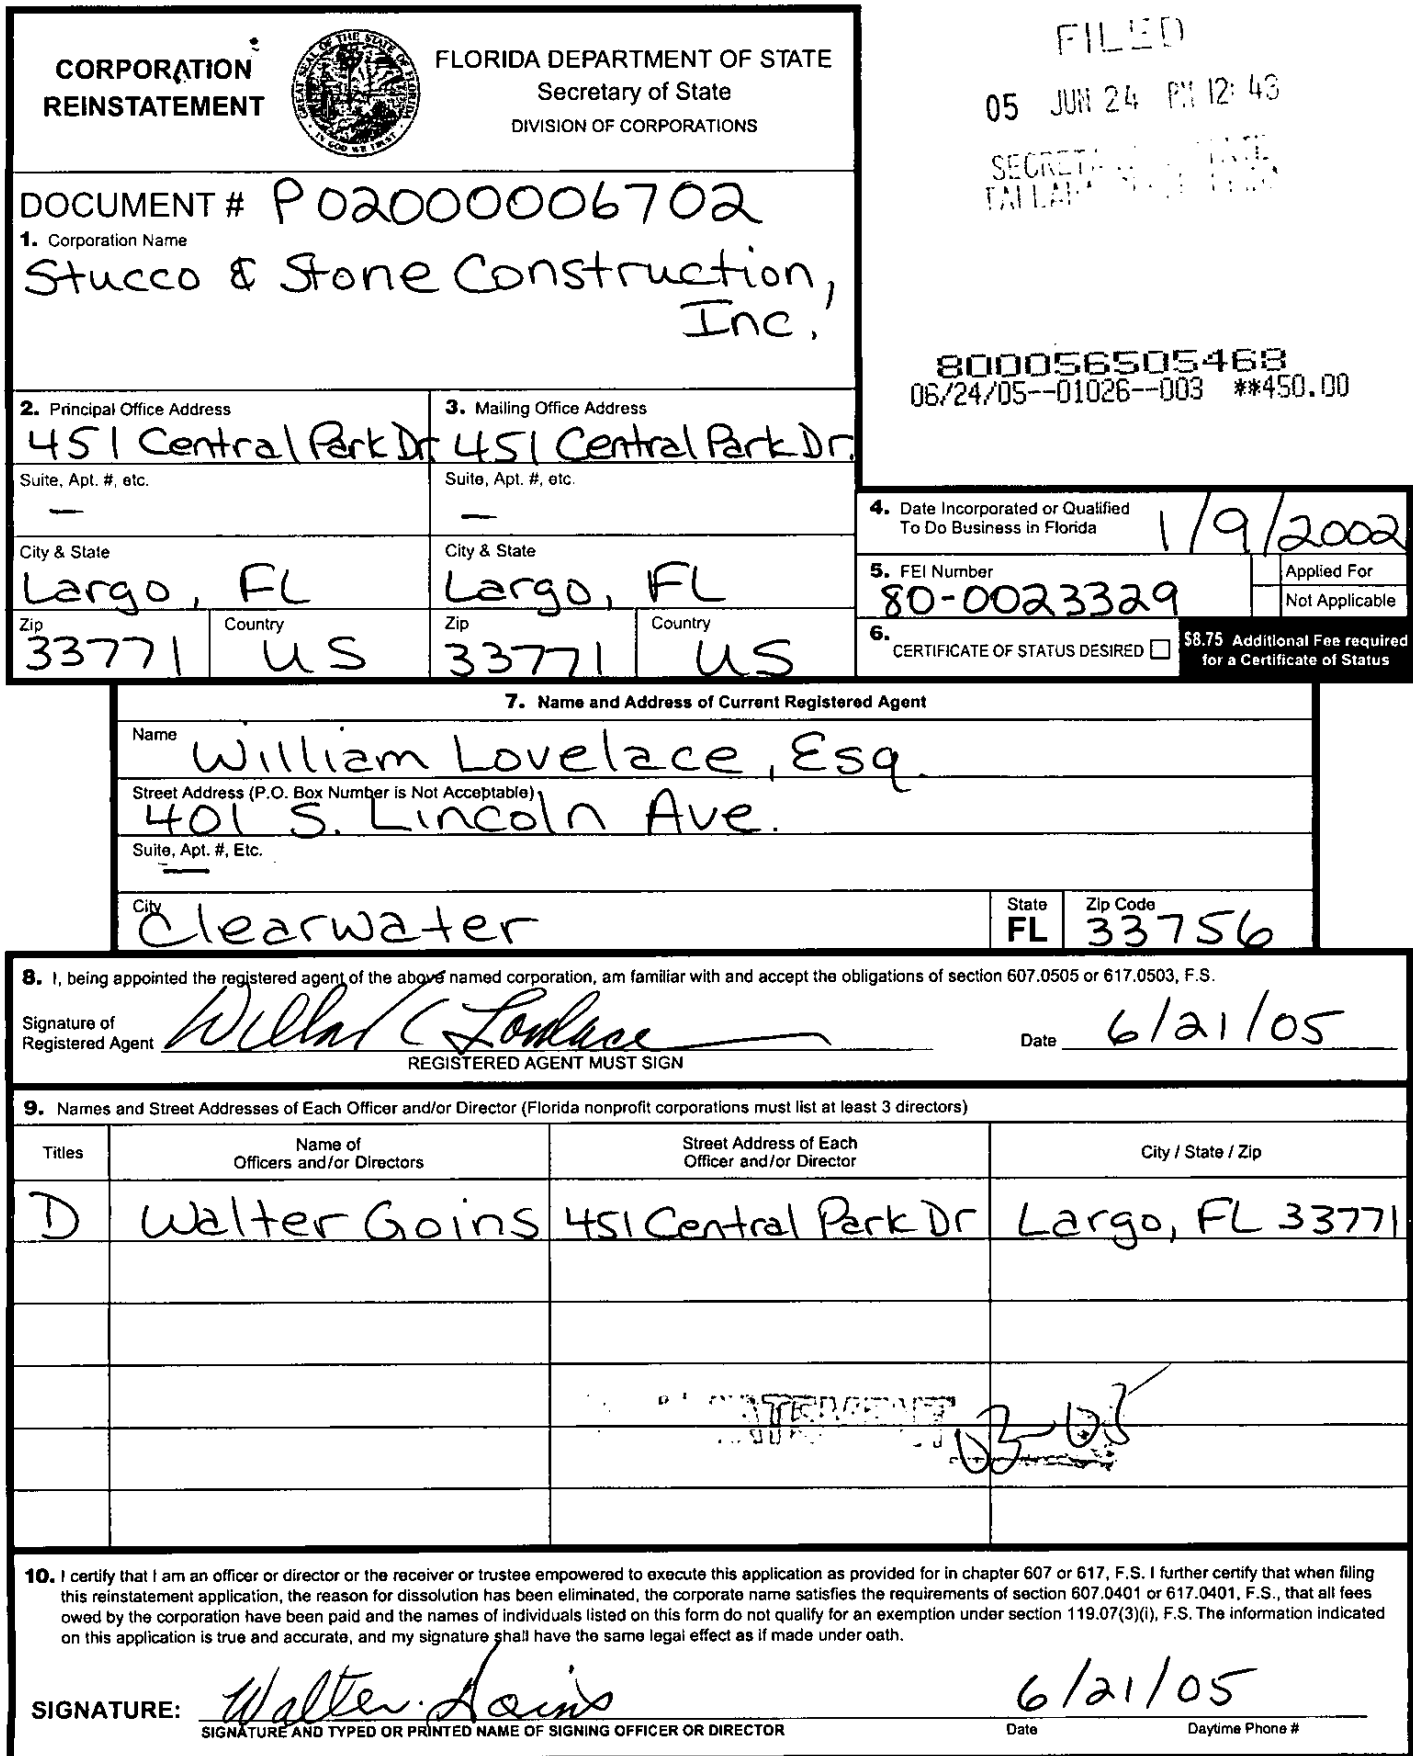 CORPORATION
REINSTATEMENT
FLORIDA DEPARTMENT OF STATE
Secretary of State
DIVISION OF CORPORATIONS
FILED
05 JUN 24 PM 12:43
DOCUMENT # P02000006702
1. Corporation Name
Stucco & Stone Construction,
Inc.
8000056505468
06/24/05--01026--003 **450.00
2. Principal Office Address
451 Central Park Dr.
3. Mailing Office Address
451 Central Park Dr.
Suite, Apt. #, etc.
—
Suite, Apt. #, etc.
—
City & State
Largo, FL
City & State
Largo, FL
Zip
33771
Country
US
Zip
33771
Country
US
4. Date Incorporated or Qualified
To Do Business in Florida
1/9/2002
5. FEI Number
80-0023329
Applied For
Not Applicable
6. CERTIFICATE OF STATUS DESIRED
$8.75 Additional Fee required
for a Certificate of Status
7. Name and Address of Current Registered Agent
Name
William Lovelace, Esq.
Street Address (P.O. Box Number is Not Acceptable)
401 S. Lincoln Ave.
Suite, Apt. #, Etc.
—
City
Clearwater
State
FL
Zip Code
33756
8. I, being appointed the registered agent of the above named corporation, am familiar with and accept the obligations of section 607.0505 or 617.0503, F.S.
Signature of
Registered Agent
William C Lovelace
REGISTERED AGENT MUST SIGN
Date 6/21/05
9. Names and Street Addresses of Each Officer and/or Director (Florida nonprofit corporations must list at least 3 directors)
Titles
Name of
Officers and/or Directors
Street Address of Each
Officer and/or Director
City / State / Zip
D Walter Goins 451 Central Park Dr Largo, FL 33771
03-05
10. I certify that I am an officer or director or the receiver or trustee empowered to execute this application as provided for in chapter 607 or 617, F.S. I further certify that when filing
this reinstatement application, the reason for dissolution has been eliminated, the corporate name satisfies the requirements of section 607.0401 or 617.0401, F.S., that all fees
owed by the corporation have been paid and the names of individuals listed on this form do not qualify for an exemption under section 119.07(3)(i), F.S. The information indicated
on this application is true and accurate, and my signature shall have the same legal effect as if made under oath.
SIGNATURE: Walter Goins 6/21/05
SIGNATURE AND TYPED OR PRINTED NAME OF SIGNING OFFICER OR DIRECTOR
Date
Daytime Phone #